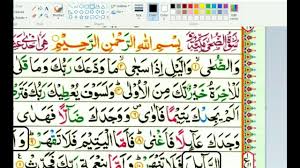 سورة الضحى مكية بسم الله الرحمن الرحيم هي احد
والضحى والليل اذا سجى ما ودعك ربك وما قلى
للاخرة خير لك من الاولى ولسوف يعطيك ربك
الم يجدك يتيما فاوى ووجدك ضالا فهدى
ووجدك عائلا فاغنى فاما اليتيم فلا تقهر